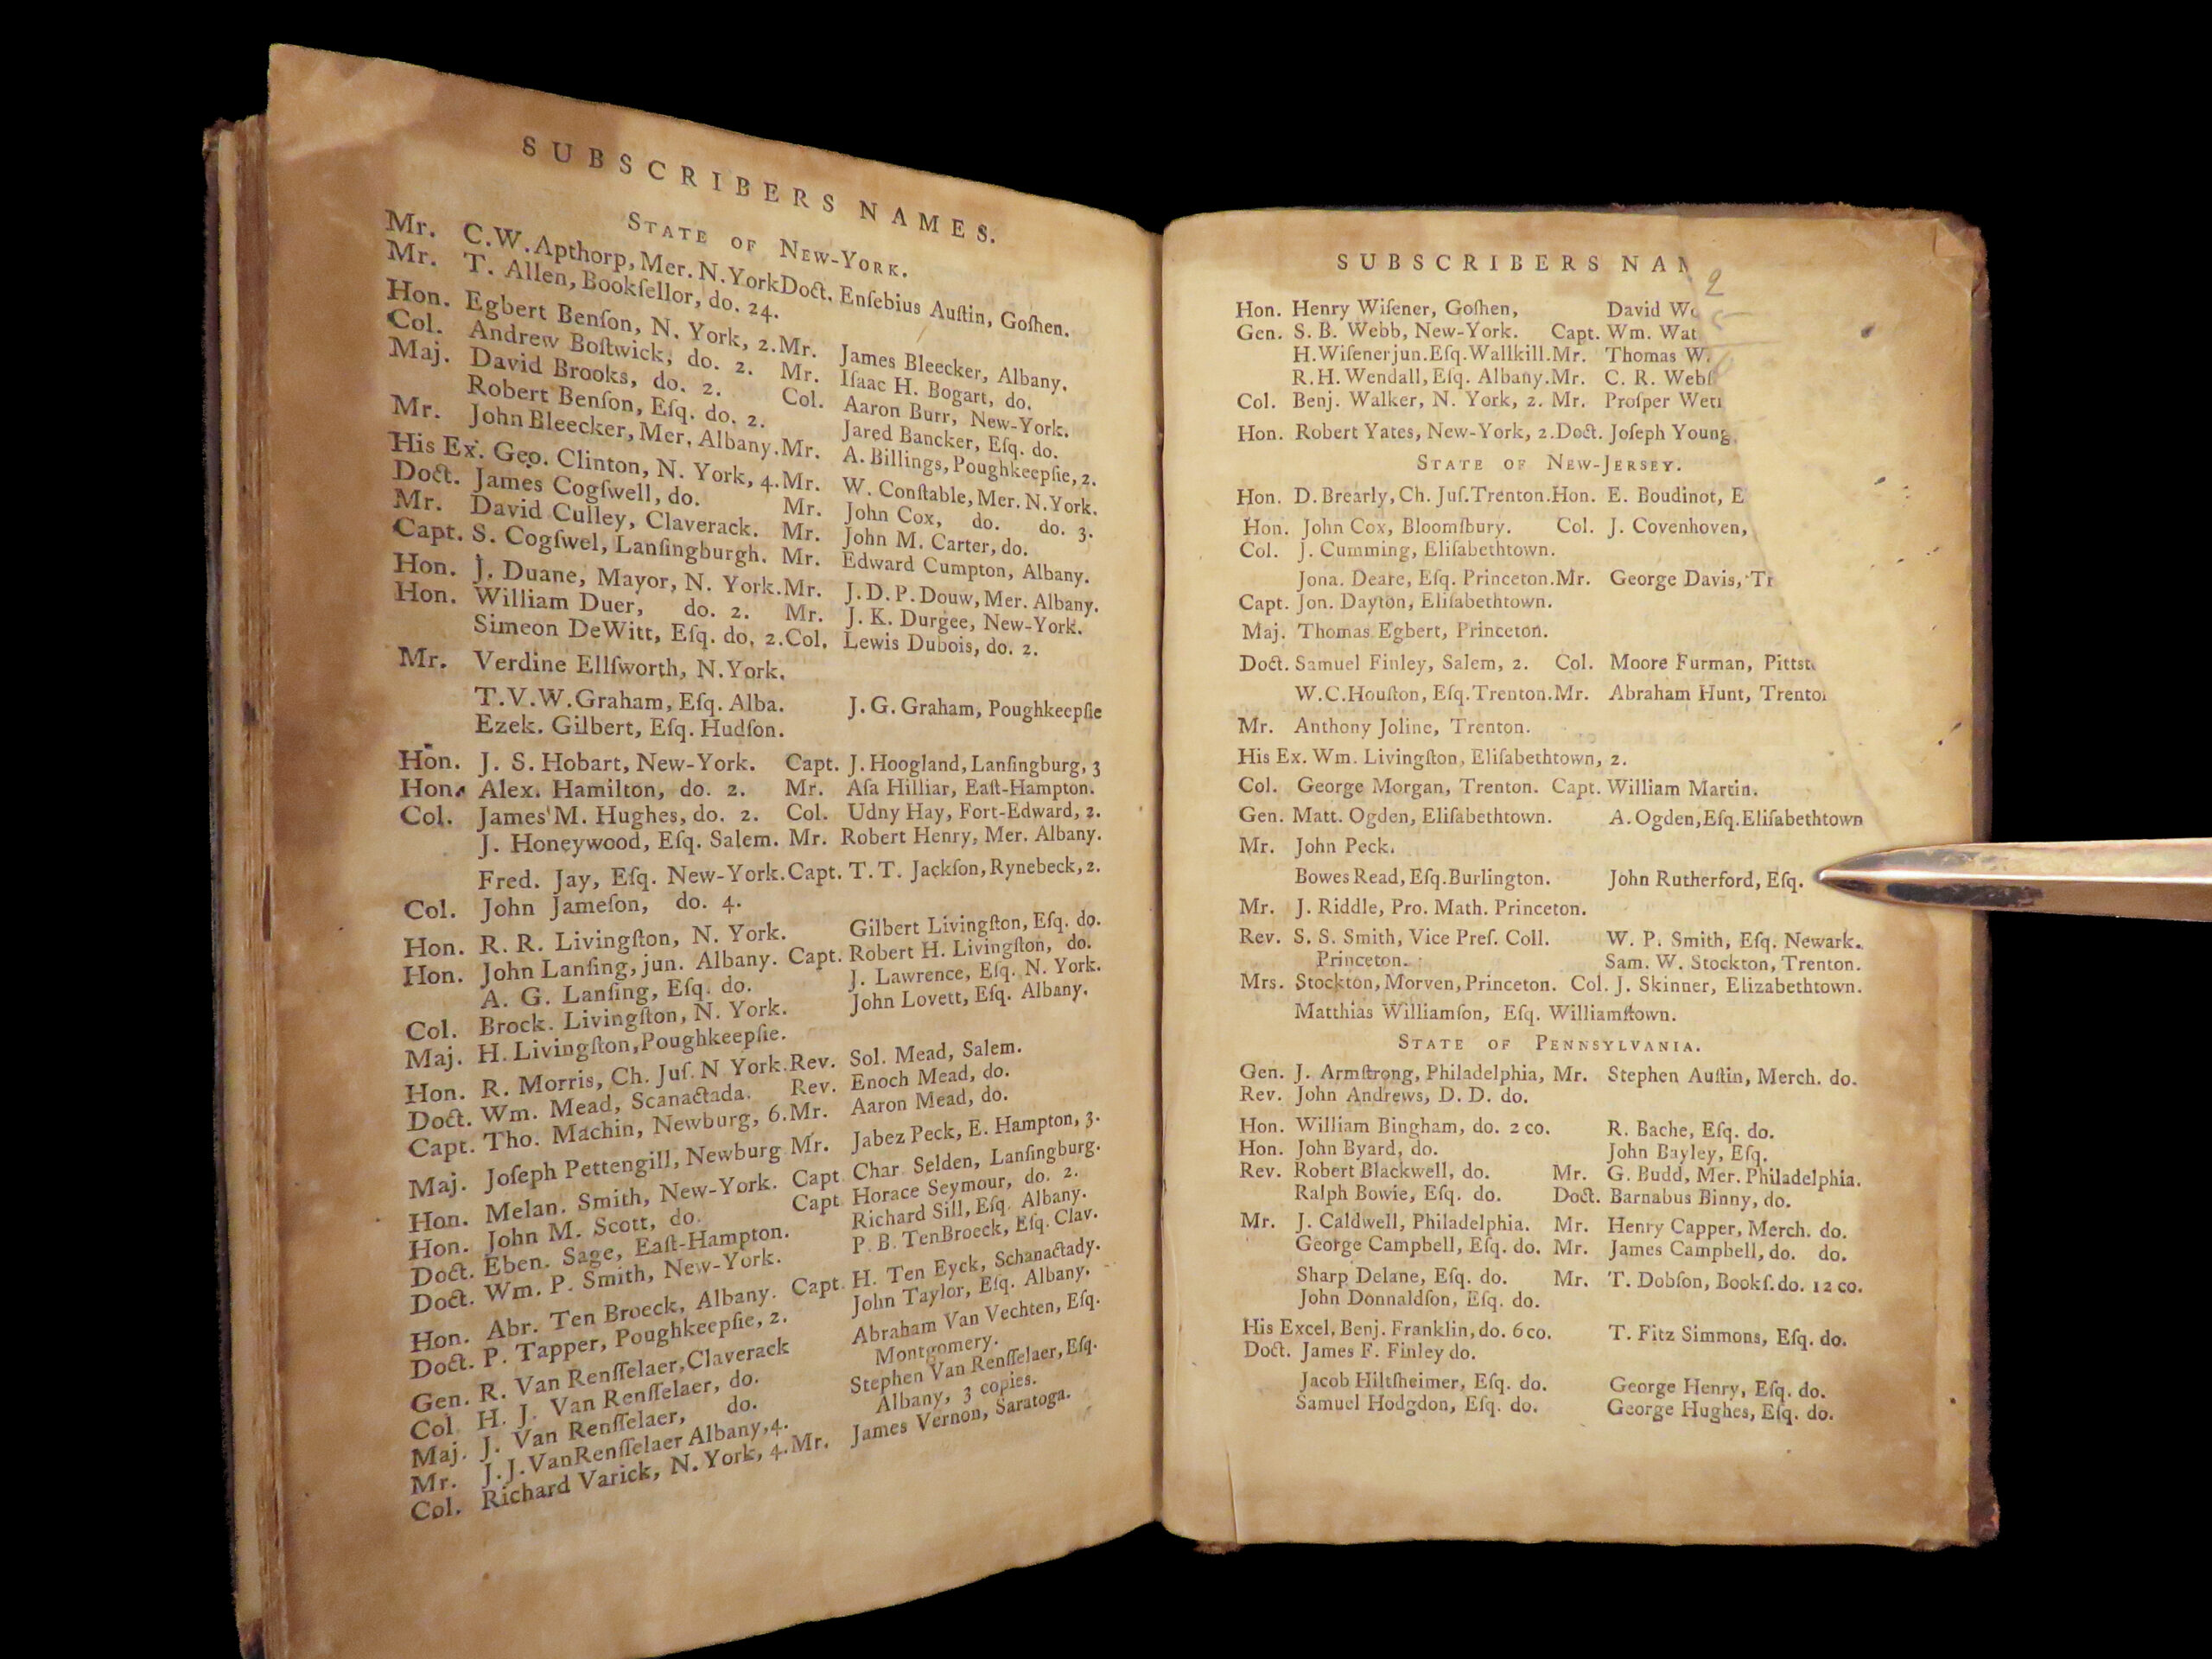 SUBSCRIBERS NAMES.
STATE OF NEW-YORK.
Mr. C.W. Apthorp, Mer. N. York Doct. Enſebius Auſtin, Goſhen.
Mr. T. Allen, Bookſellor, do. 24.
Hon. Egbert Benſon, N. York, 2. Mr. James Bleecker, Albany.
Col. Andrew Boſtwick, do. 2. Mr. Iſaac H. Bogart, do.
Maj. David Brooks, do. 2. Col. Aaron Burr, New-York.
Robert Benſon, Eſq. do. 2. Jared Bancker, Eſq. do.
Mr. John Bleecker, Mer. Albany. Mr. A. Billings, Poughkeepſie, 2.
His Ex. Geo. Clinton, N. York, 4. Mr. W. Conſtable, Mer. N. York.
Doct. James Cogſwell, do. Mr. John Cox, do. do. 3.
Mr. David Culley, Claverack. Mr. John M. Carter, do.
Capt. S. Cogſwel, Lanſingburgh. Mr. Edward Cumpton, Albany.
Hon. J. Duane, Mayor, N. York. Mr. J. D. P. Douw, Mer. Albany.
Hon. William Duer, do. 2. Mr. J. K. Durgee, New-York.
Simeon DeWitt, Eſq. do. 2. Col. Lewis Dubois, do. 2.
Mr. Verdine Ellſworth, N. York.
T. V. W. Graham, Eſq. Alba. J. G. Graham, Poughkeepſie
Ezek. Gilbert, Eſq. Hudſon.
Hon. J. S. Hobart, New-York. Capt. J. Hoogland, Lanſingburg, 3
Hon. Alex. Hamilton, do. 2. Mr. Aſa Hilliar, Eaſt-Hampton.
Col. James M. Hughes, do. 2. Col. Udny Hay, Fort-Edward, 2.
J. Honeywood, Eſq. Salem. Mr. Robert Henry, Mer. Albany.
Fred. Jay, Eſq. New-York. Capt. T. T. Jackſon, Rynebeck, 2.
Col. John Jameſon, do. 4.
Hon. R. R. Livingſton, N. York. Gilbert Livingſton, Eſq. do.
Hon. John Lanſing, jun. Albany. Capt. Robert H. Livingſton, do.
A. G. Lanſing, Eſq. do. J. Lawrence, Eſq. N. York.
Col. Brock. Livingſton, N. York. John Lovett, Eſq. Albany.
Maj. H. Livingſton, Poughkeepſie.
Hon. R. Morris, Ch. Juſ. N York. Rev. Sol. Mead, Salem.
Doct. Wm. Mead, Scanactada. Rev. Enoch Mead, do.
Capt. Tho. Machin, Newburg, 6. Mr. Aaron Mead, do.
Maj. Joſeph Pettengill, Newburg Mr. Jabez Peck, E. Hampton, 3.
Hon. Melan. Smith, New-York. Capt. Char. Selden, Lanſingburg.
Hon. John M. Scott, do. Capt. Horace Seymour, do. 2.
Doct. Eben. Sage, Eaſt-Hampton. Richard Sill, Eſq. Albany.
Doct. Wm. P. Smith, New-York. P. B. TenBroeck, Eſq. Clav.
Hon. Abr. Ten Broeck, Albany. Capt. H. Ten Eyck, Schanactady.
Doct. P. Tapper, Poughkeepſie, 2. John Taylor, Eſq. Albany.
Gen. R. Van Renſſelaer, Claverack Abraham Van Vechten, Eſq.
Montgomery.
Col. H. J. Van Renſſelaer, do. Stephen Van Renſſelaer, Eſq.
Maj. J. Van Renſſelaer, do. Albany, 3 copies.
Mr. J. J. VanRenſſelaer Albany, 4.
Col. Richard Varick, N. York, 4. Mr. James Vernon, Saratoga.
SUBSCRIBERS NAM
2
Hon. Henry Wiſener, Goſhen, David Wo
Gen. S. B. Webb, New-York. Capt. Wm. Wat
H. Wiſener jun. Eſq. Wallkill. Mr. Thomas W.
R. H. Wendall, Eſq. Albany. Mr. C. R. Webſ
Col. Benj. Walker, N. York, 2. Mr. Proſper Wet
Hon. Robert Yates, New-York, 2. Doct. Joſeph Young
STATE OF NEW-JERSEY.
Hon. D. Brearly, Ch. Juſ. Trenton. Hon. E. Boudinot, E
Hon. John Cox, Bloomſbury. Col. J. Covenhoven,
Col. J. Cumming, Eliſabethtown.
Jona. Deare, Eſq. Princeton. Mr. George Davis, Tr
Capt. Jon. Dayton, Eliſabethtown.
Maj. Thomas Egbert, Princeton.
Doct. Samuel Finley, Salem, 2. Col. Moore Furman, Pittst
W. C. Houſton, Eſq. Trenton. Mr. Abraham Hunt, Trento
Mr. Anthony Joline, Trenton.
His Ex. Wm. Livingſton, Eliſabethtown, 2.
Col. George Morgan, Trenton. Capt. William Martin.
Gen. Matt. Ogden, Eliſabethtown. A. Ogden, Eſq. Eliſabethtown
Mr. John Peck.
Bowes Read, Eſq. Burlington. John Rutherford, Eſq.
Mr. J. Riddle, Pro. Math. Princeton.
Rev. S. S. Smith, Vice Preſ. Coll. W. P. Smith, Eſq. Newark.
Princeton. Sam. W. Stockton, Trenton.
Mrs. Stockton, Morven, Princeton. Col. J. Skinner, Elizabethtown.
Matthias Williamſon, Eſq. Williamſtown.
STATE OF PENNSYLVANIA.
Gen. J. Armſtrong, Philadelphia, Mr. Stephen Auſtin, Merch. do.
Rev. John Andrews, D. D. do.
Hon. William Bingham, do. 2 co. R. Bache, Eſq. do.
Hon. John Byard, do. John Bayley, Eſq.
Rev. Robert Blackwell, do. Mr. G. Budd, Mer. Philadelphia.
Ralph Bowie, Eſq. do. Doct. Barnabus Binny, do.
Mr. J. Caldwell, Philadelphia. Mr. Henry Capper, Merch. do.
George Campbell, Eſq. do. Mr. James Campbell, do. do.
Sharp Delane, Eſq. do. Mr. T. Dobſon, Bookſ. do. 12 co.
John Donnaldſon, Eſq. do.
His Excel. Benj. Franklin, do. 6 co. T. Fitz Simmons, Eſq. do.
Doct. James F. Finley do.
Jacob Hiltſheimer, Eſq. do. George Henry, Eſq. do.
Samuel Hodgdon, Eſq. do. George Hughes, Eſq. do.